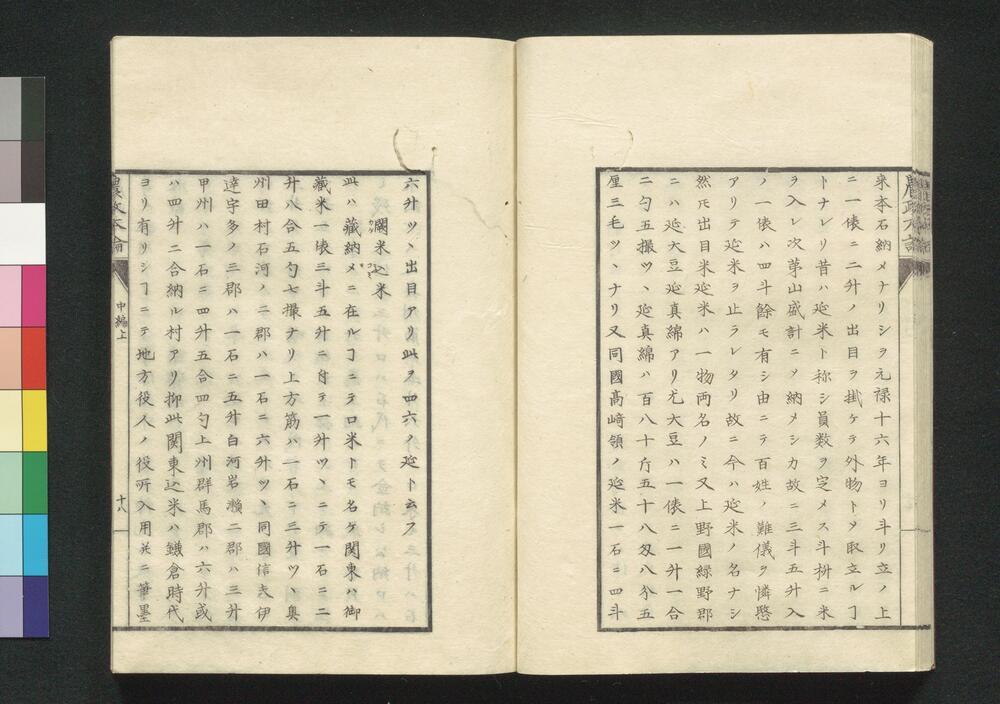 農政本論
来本石納メナリシヲ元禄十六年ヨリ斗リ立ノ上
ニ一俵ニ二升ノ出目ヲ掛ケラ外物トヲ取立ルヿ
トナレリ昔ハ延米ト称シ員数ヲ定メス斗枡ニ米
ヲ入レ次第山盛計ニメ納メシカ故ニ三斗五升入
ノ一俵ハ四斗餘モ有シ由ニテ百姓ノ難儀ヲ憐愍
アリテ延米ヲ止ラレタリ故ニ今ハ延米ノ名ナシ
然𪜈出目米延米ハ一物両名ノミ又上野國緑野郡
ニハ延大豆延真綿アリ尤大豆ハ一俵ニ一升一合
二勺五撮ツヽ延真綿ハ百八十斤五十八匁八分五
厘三毛ツヽナリ又同國高崎領ノ延米一石ニ四斗
六升ツヽ出目アリ此ヲ四六ノ延ト云フ
関米込米
此ハ藏納メニ在ルヿニテ口米トモ名ケ関東ハ御
藏米一俵三斗五升ニ付テ一升ツヽニテ一石ニ二
升八合五勺七撮ナリ上方筋ハ一石ニ三升ツヽ奥
州田村石河ノ二郡ハ一石ニ六升ツヽ同國信夫伊
達宇多ノ三郡ハ一石ニ五升白河岩瀬二郡ハ三升
甲州ハ一石ニ四升五合四勺上州群馬郡ハ六升或
ハ四升二合納ル村アリ抑此関東込米ハ鎌倉時代
ヨリ有リシヿニテ地方役人ノ役所入用并ニ筆墨
農政本論
中編上
十八